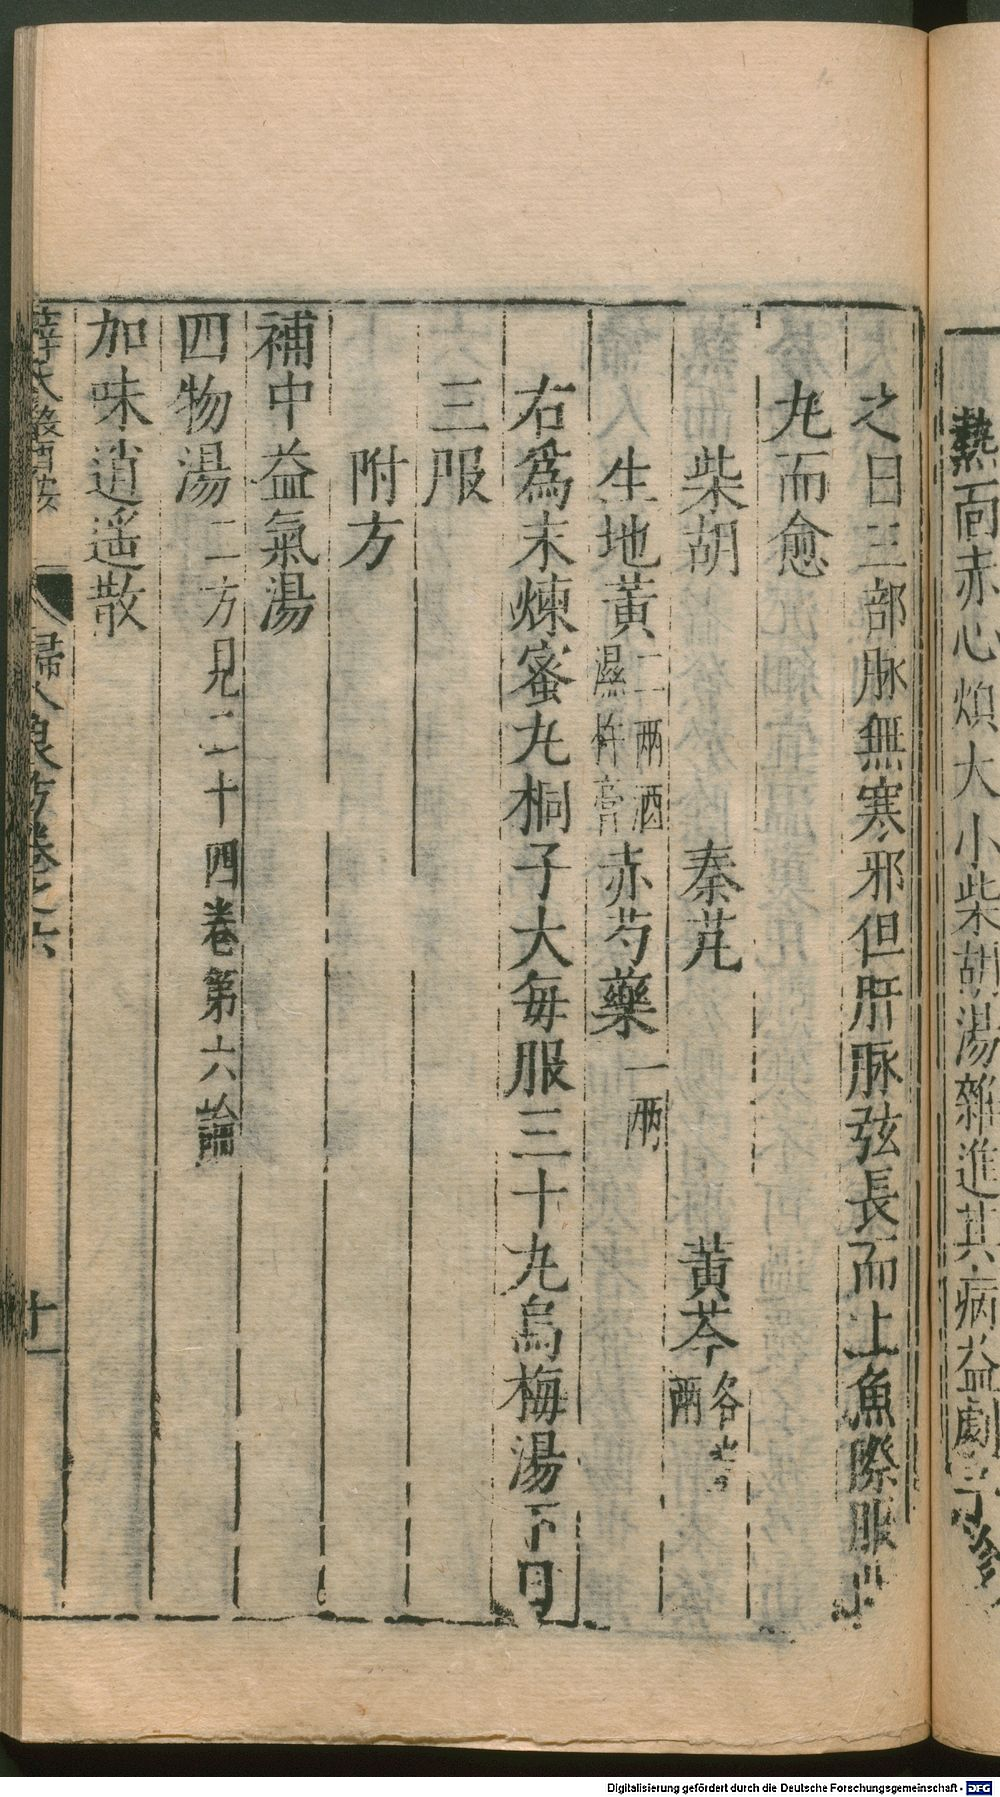 熱面赤心煩大小柴胡湯雜進其病益劇
之日三部脉無寒邪但肝脉弦長而上魚際服
丸而愈
柴胡　秦艽　黃芩各 兩
生地黃二兩酒濕杵膏　赤芍藥一兩
右爲末煉蜜丸桐子大每服三十丸烏梅湯下日
三服
附方
補中益氣湯
四物湯二方見二十四卷第六論
加味逍遥散
薛氏醫按 婦人良方卷之六 十一
Digitalisierung gefördert durch die Deutsche Forschungsgemeinschaft - DFG